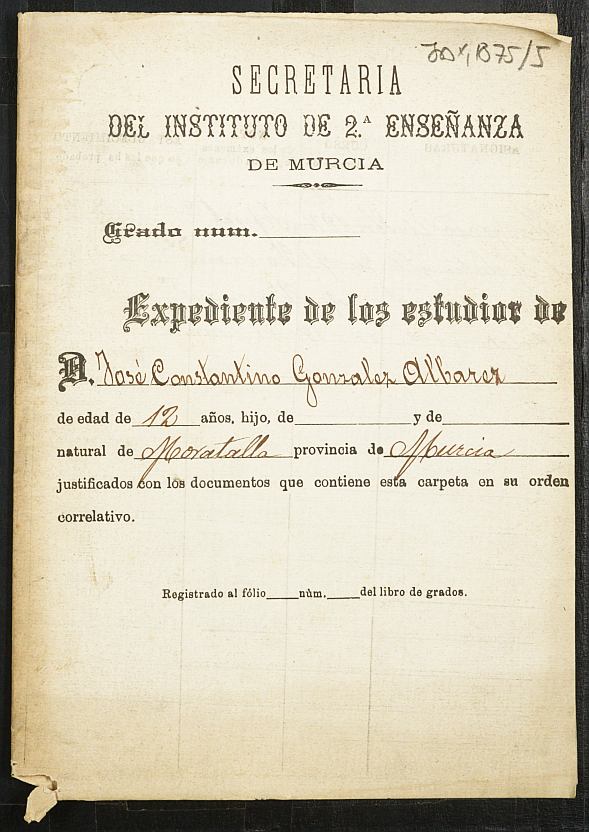 SECRETARIA
DEL INSTITUTO DE 2.ª ENSEÑANZA
DE MURCIA
Grado num.
Expediente de los estudios de
D. José Constantino Gonzalez Albarez
de edad de 12 años, hijo, de y de
natural de Moratalla provincia de Murcia
justificados con los documentos que contiene esta carpeta en su orden
correlativo.
Registrado al fólio núm. del libro de grados.